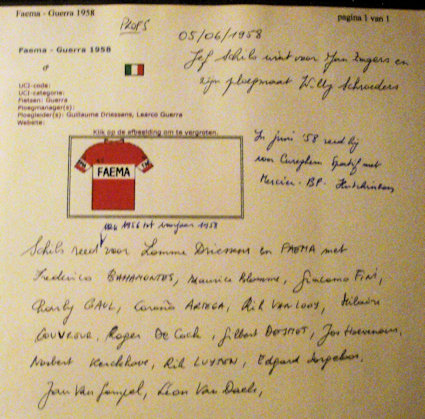 Faema - Guerra 1958
pagina 1 van 1
PROFS
05/06/1958
Faema - Guerra 1958
Jef Schils wint voor Jan Zagers en
zijn ploegmaat Willy Schroeders
UCI-code:
UCI-categorie:
Fietsen: Guerra
Ploegmanager(s):
Ploegleider(s): Guillaume Driessens, Learco Guerra
Website:
Klik op de afbeelding om te vergroten.
FAEMA
In juni '58 reed hij
voor Cureghem Sportif met
Mercier - BP - Hutchinson
1956 tot voorjaar 1958
Schils reed voor Lomme Driessens en FAEMA met
Frederico BAHAMONTES, Maurice Blomme, Giacomo FINI,
Charly GAUL, ARTEGA, Rik VAN LOOY, Hilaire
COUVREUR, Roger De Cock, Gilbert DESMET, Jos Hoevenaers,
Norbert Kerckhove, Rik LUYTEN, Edgard Sorgeloos,
Jan Van Gompel, Leon Van Daele,